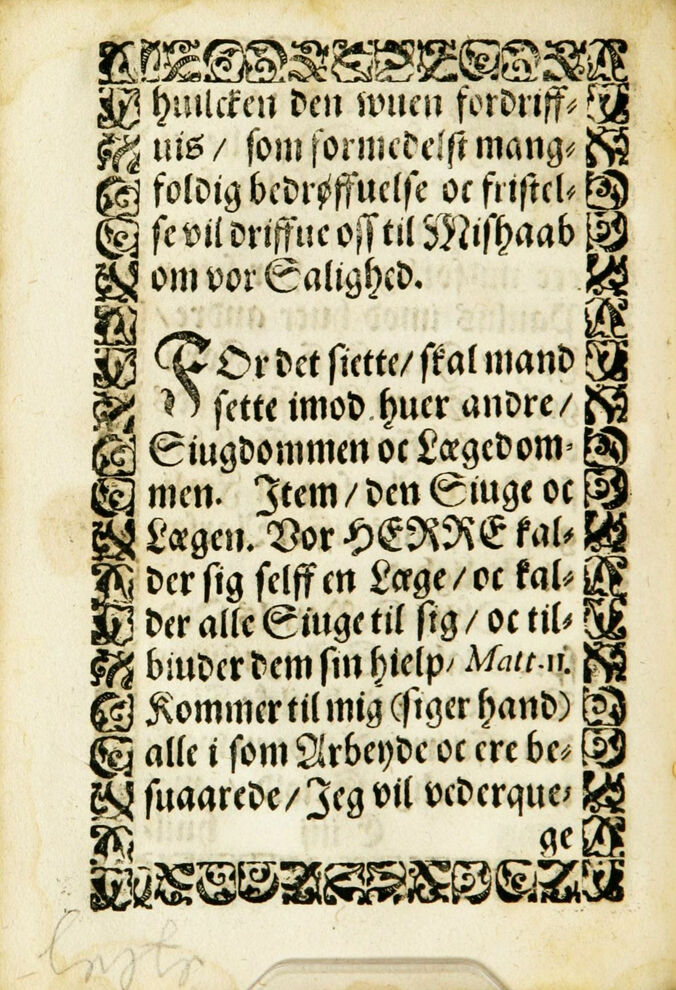 huilcken den wuen fordriff⸗
uis / som formedelst mang⸗
foldig bedrøffuelse oc fristel⸗
se vil driffue oss til Mishaab
om vor Salighed.
FOr det siette / skal mand
sette imod huer andre /
Siugdommen oc Lægedom⸗
men. Item / den Siuge oc
Lægen. Vor HERRE kal⸗
der sig selff en Læge / oc kal⸗
der alle Siuge til sig / oc til⸗
biuder dem sin hielp / Matt. 11.
Kommer til mig (siger hand)
alle i som Arbeyde oc ere be⸗
suaarede / Jeg vil vederque⸗
ge